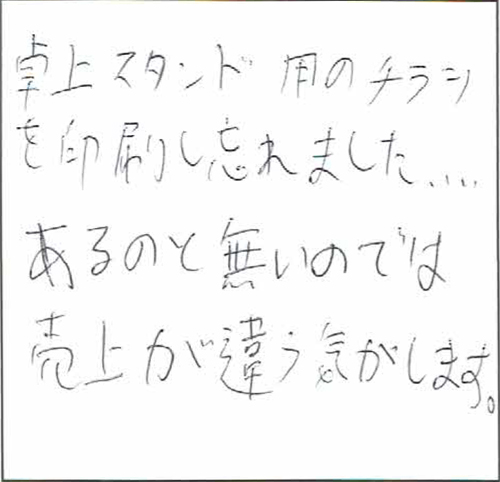 卓上スタンド用のチラシ
を印刷し忘れました....
あるのと無いのでは
売上が違う気がします。